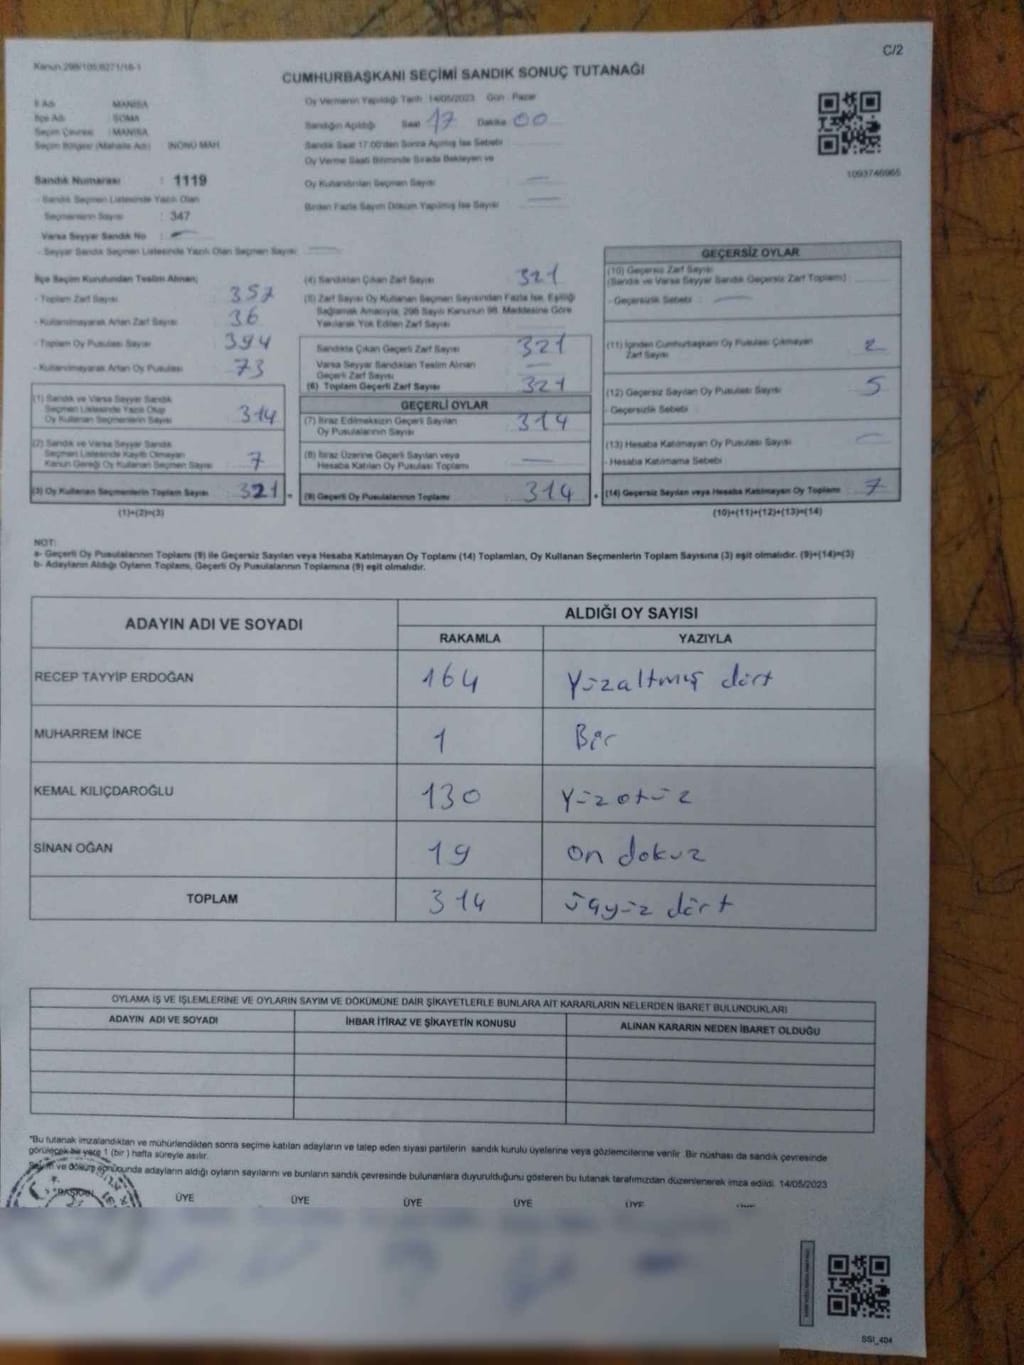 Kanun:298/105;6271/18-1
C/2
CUMHURBAŞKANI SEÇİMİ SANDIK SONUÇ TUTANAĞI
İl Adı MANİSA
İlçe Adı SOMA
Seçim Çevresi : MANİSA
Seçim Bölgesi (Mahalle Adı) İNÖNÜ MAH.
Sandık Numarası : 1119
- Sandık Seçmen Listesinde Yazılı Olan
Seçmenlerin Sayısı : 347
Varsa Seyyar Sandık No : —
- Seyyar Sandık Seçmen Listesinde Yazılı Olan Seçmen Sayısı : —
Oy Vermenin Yapıldığı Tarih :14/05/2023 Gün : Pazar
Sandığın Açıldığı Saat 17 Dakika 00
Sandık Saat 17.00'den Sonra Açılmış İse Sebebi
Oy Verme Saati Bitiminde Sırada Bekleyen ve
Oy Kullandırılan Seçmen Sayısı —
Birden Fazla Sayım Döküm Yapılmış İse Sayısı —
1093746965
İlçe Seçim Kurulundan Teslim Alınan;
- Toplam Zarf Sayısı 357
- Kullanılmayarak Artan Zarf Sayısı 36
- Toplam Oy Pusulası Sayısı 394
- Kullanılmayarak Artan Oy Pusulası 73
(1) Sandık ve Varsa Seyyar Sandık
Seçmen Listesinde Yazılı Olup
Oy Kullanan Seçmenlerin Sayısı 314
(2) Sandık ve Varsa Seyyar Sandık
Seçmen Listesinde Kayıtlı Olmayan
Kanun Gereği Oy Kullanan Seçmen Sayısı 7
(3) Oy Kullanan Seçmenlerin Toplam Sayısı 321
(1)+(2)=(3)
(4) Sandıktan Çıkan Zarf Sayısı 321
(5) Zarf Sayısı Oy Kullanan Seçmen Sayısından Fazla İse, Eşitliği
Sağlamak Amacıyla, 298 Sayılı Kanunun 98. Maddesine Göre
Yakılarak Yok Edilen Zarf Sayısı
Sandıkta Çıkan Geçerli Zarf Sayısı 321
Varsa Seyyar Sandıktan Teslim Alınan
Geçerli Zarf Sayısı —
(6) Toplam Geçerli Zarf Sayısı 321
GEÇERLİ OYLAR
(7) İtiraz Edilmeksizin Geçerli Sayılan
Oy Pusulalarının Sayısı 314
(8) İtiraz Üzerine Geçerli Sayılan veya
Hesaba Katılan Oy Pusulası Toplamı —
(9) Geçerli Oy Pusulalarının Toplamı 314
=
+
GEÇERSİZ OYLAR
(10) Geçersiz Zarf Sayısı
(Sandık ve Varsa Seyyar Sandık Geçersiz Zarf Toplamı)
- Geçersizlik Sebebi : —
(11) İçinden Cumhurbaşkanı Oy Pusulası Çıkmayan
Zarf Sayısı 2
(12) Geçersiz Sayılan Oy Pusulası Sayısı 5
- Geçersizlik Sebebi
(13) Hesaba Katılmayan Oy Pusulası Sayısı —
- Hesaba Katılmama Sebebi
(14) Geçersiz Sayılan veya Hesaba Katılmayan Oy Toplamı 7
(10)+(11)+(12)+(13)=(14)
NOT:
a- Geçerli Oy Pusulalarının Toplamı (9) ile Geçersiz Sayılan veya Hesaba Katılmayan Oy Toplamı (14) Toplamları, Oy Kullanan Seçmenlerin Toplam Sayısına (3) eşit olmalıdır. (9)+(14)=(3)
b- Adayların Aldığı Oyların Toplamı, Geçerli Oy Pusulalarının Toplamına (9) eşit olmalıdır.
ADAYIN ADI VE SOYADI
ALDIĞI OY SAYISI
RAKAMLA YAZIYLA
RECEP TAYYİP ERDOĞAN 164 Yüzaltmış dört
MUHARREM İNCE 1 Bir
KEMAL KILIÇDAROĞLU 130 Yüzotuz
SİNAN OĞAN 19 on dokuz
TOPLAM 314 üçyüz dört
OYLAMA İŞ VE İŞLEMLERİNE VE OYLARIN SAYIM VE DÖKÜMÜNE DAİR ŞİKAYETLERLE BUNLARA AİT KARARLARIN NELERDEN İBARET BULUNDUKLARI
ADAYIN ADI VE SOYADI İHBAR İTİRAZ VE ŞİKAYETİN KONUSU ALINAN KARARIN NEDEN İBARET OLDUĞU
*Bu tutanak imzalandıktan ve mühürlendikten sonra seçime katılan adayların ve talep eden siyasi partilerin sandık kurulu üyelerine veya gözlemcilerine verilir. Bir nüshası da sandık çevresinde
görülecek bir yere 1 (bir) hafta süreyle asılır.
Sayım ve döküm sonucunda adayların aldığı oyların sayılarını ve bunların sandık çevresinde bulunanlara duyurulduğunu gösteren bu tutanak tarafımızdan düzenlenerek imza edildi. 14/05/2023
BAŞKAN ÜYE ÜYE ÜYE ÜYE ÜYE
SSI_404